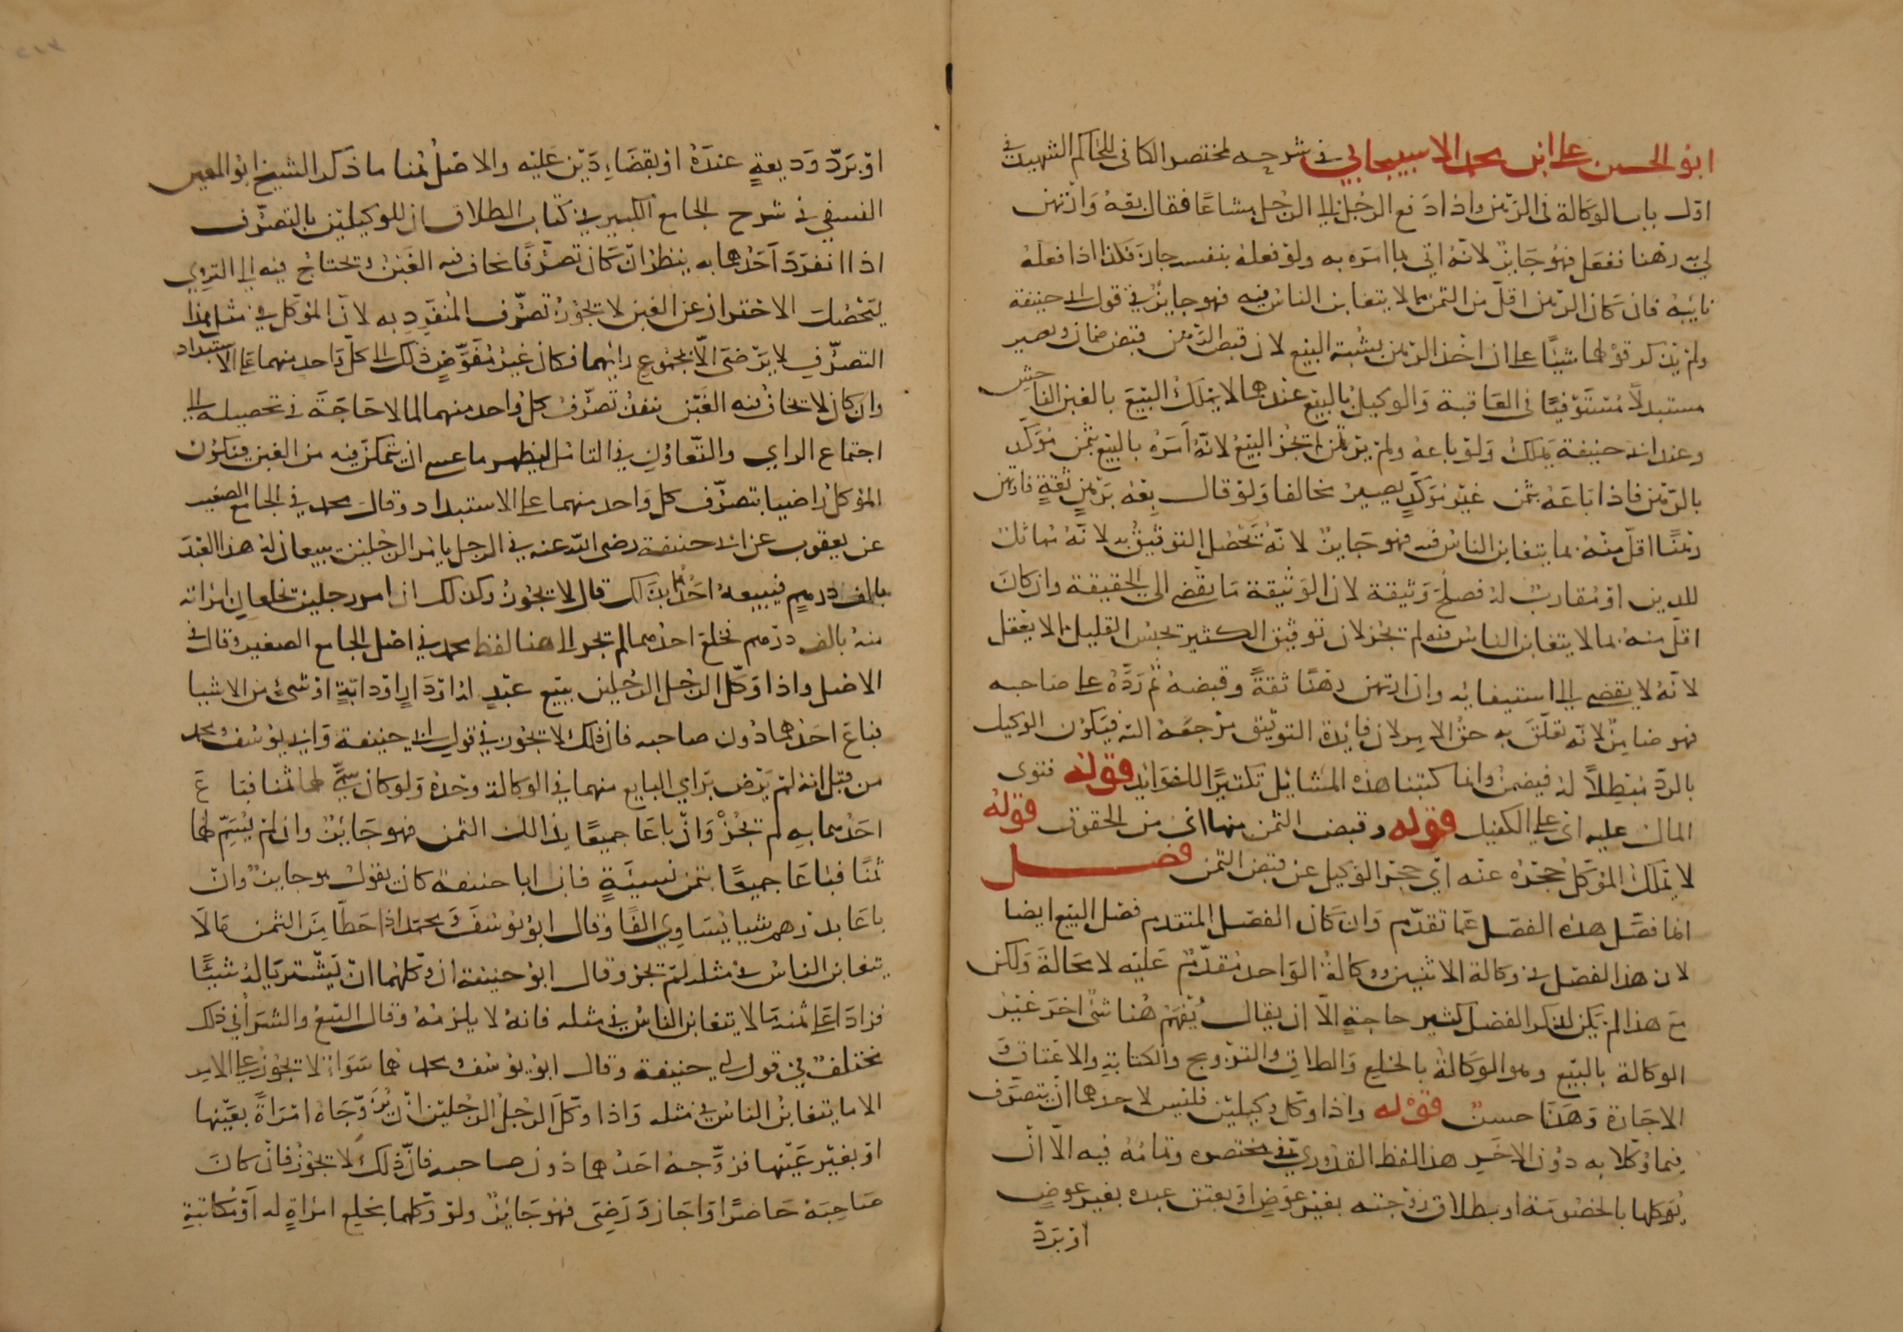 ابو الحسن علي ابن محمد الاسبيجابي في شرحه لمختصر الكافي للحاكم الشهيد في
اول باب الوكالة في الرهن واذا دفع الرجل الى الرجل متاعا فقال بعه وارتهن
لي به رهنا ففعل فهو جايز لانه اتى بما امره به ولو فعله بنفسه جاز فكذا اذا فعله
نايبه فان كان الرهن اقل من الثمن بما لا يتغابن الناس فيه فهو جايز في قول ابي حنيفة
ولم يذكر قولهما شيئا على ان اخذ الرهن يشبه البيع لان قبض الرهن قبض ضمان ويصير
مستبدلا مستوفيا في العاقبة والوكيل بالبيع عندهما لا يملك البيع بالغبن الفاحش
وعند ابي حنيفة يملك ولو باعه ولم يرتهن لم يجز البيع لانه امره بالبيع بثمن مؤكد
بالرهن فاذا باعه بثمن غير مؤكد يصير مخالفا ولو قال بعه برهن ثقة فارتهن
رهنا اقل منه بما يتغابن الناس فيه فهو جايز لانه يحصل التوثيق به لانه مماثل
للدين او مقارب له فصلح وثيقة لان الوثيقة ما يفضي الى الحقيقة وان كان
اقل منه بما لا يتغابن الناس فيه لم يجز لان توثيق الكثير بحبس القليل مما لا يعقل
لانه لا يفضي الى استيفائه وان ارتهن رهنا ثقة وقبضه ثم رده على صاحبه
فهو ضامن لانه تعلق به حق الامر لان فايدة التوثيق مرجعه اليه فيكون الوكيل
بالرد مبطلا له فيضمن وانما كتبنا هذه المسائل تكثيرا للفوايد قوله فتوى
المال عليه اي على الكفيل قوله وقبض الثمن منها اي من الحقوق قوله
لا يملك الموكل حجره عنه اي حجر الوكيل عن قبض الثمن فصل
انما فصل هذه الفصل عما تقدم وان كان الفصل المتقدم فصل البيع ايضا
لان هذا الفصل في وكالة الاثنين ووكالة الواحد متقدم عليه لا محالة ولكن
مع هذا لم يكن لذكر الفصل كثير حاجة الا ان يقال يفهم هنا شئ اخر غير
الوكالة بالبيع وهو الوكالة بالخلع والطلاق والتزويج والكتابة والاعتاق و
الاجازة وهذا حسن قوله واذا وكل وكيلين فليس لاحدهما ان يتصرف
فيما وكلا به دون الاخر هذا لفظ القدوري في مختصره وتمامه فيه الا ان
يوكلهما بالخصومة او بطلاق زوجته بغير عوض او بعتق عبده بغير عوض
او برد
او برد وديعة عنده او بقضاء دين عليه والاصل هنا ما ذكر الشيخ ابو المعين
النسفي في شرح الجامع الكبير في كتاب الطلاق ان للوكيلين بالتصرف
اذا انفرد احدهما به ينظر ان كان تصرفا يخاف فيه الغبن ويحتاج فيه الى التروي
ليحصل الاحتراز عن الغبن لا يجوز تصرف المنفرد به لان الموكل في مثل هذا
التصرف لا يرضى الا بمجموع رايهما فكان غير مفوض ذلك الى كل واحد منهما على الاستبداد
وان كان لا يخاف فيه الغبن ينفذ تصرف كل واحد منهما لما لا حاجة في تحصيله الى
اجتماع الراي والتعاون في التامل ليظهر ما عسى ان يتمكن فيه من الغبن فيكون
الموكل راضيا بتصرف كل واحد منهما على الاستبداد وقال محمد في الجامع الصغير
عن يعقوب عن ابي حنيفة رضي الله عنه في الرجل يامر الرجلين يبيعان له هذا العبد
بالف درهم فيبيعه احدهما بذلك قال لا يجوز وكذلك ان امر رجلين يخلعان امراته
منه بالف درهم فخلع احدهما لم يجز الى هنا لفظ محمد في اصل الجامع الصغير وقال في
الاصل واذا وكل الرجل الرجلين ببيع عبد او دار او دابة او شئ من الاشيا
فباع احدهما دون صاحبه فان ذلك لا يجوز في قول ابي حنيفة وابي يوسف ومحمد
من قبل انه لم يرض براي البايع منهما في الوكالة وحده ولو كان سمى لهما ثمنا فباع
احدهما به لم يجز وان باعا جميعا بذلك الثمن فهو جايز وان لم يسم لهما
ثمنا فباعا جميعا بثمن نسيئة فان ابا حنيفة كان يقول هو جايز وان
باعا بدرهم شيا يساوي الفا وقال ابو يوسف ومحمد اذا حطا من الثمن ما لا
يتغابن الناس في مثله لم يجز وقال ابو حنيفة ان وكلهما ان يشتريا له شيئا
فزادا على ثمنه ما لا يتغابن الناس في مثله فانه لا يلزمه وقال البيع والشرا في ذلك
مختلف في قول ابي حنيفة وقال ابو يوسف ومحمد هما سواء لا يجوز على الامر
الا ما يتغابن الناس في مثله واذا وكل الرجل الرجلين ان يزوجاه امراة بعينها
او بغير عينها فزوجه احدهما دون صاحبه فان ذلك لا يجوز فان كان
صاحبه حاضرا واجاز ورضى فهو جايز ولو وكلهما بخلع امراة له او مكاتبة